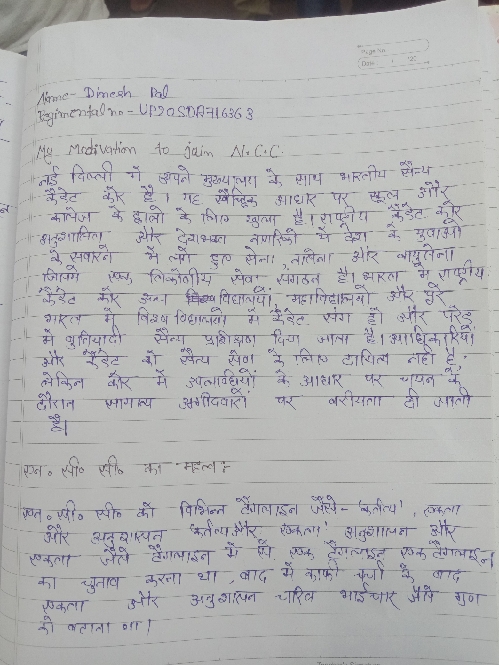 Page No.
Date
Name - Dinesh Pal
Regimental no - UP20SDA716363
My Motivation to join N.C.C.
नई दिल्ली में अपने मुख्यालय के साथ भारतीय सैन्य
कैडेट कोर है। यह स्वैच्छिक आधार पर स्कूल और
कालेज के छात्रों के लिए खुला है। राष्ट्रीय कैडेट कोर
अनुशासित और देशभक्त नागरिकों में देश के युवाओं
के सवारने में लगे हुए सेना, नौसेना और वायुसेना
जिसमें एक त्रिकोणीय सेवा संगठन है। भारत में राष्ट्रीय
कैडेट कोर उच्च विद्यालयों, महाविद्यालयों और पूरे
भारत में विश्वविद्यालयों में कैडेट संग है और परेड
में बुनियादी सैन्य प्रशिक्षण दिया जाता है। अधिकारियों
और कैडेट को सैन्य सेवा के लिए दायित्व नहीं है,
लेकिन कोर में उपलब्धियों के आधार पर चयन के
दौरान सामान्य उम्मीदवारों पर वरीयता दी जाती
है।
एन. सी. सी. का महत्व:
एन. सी. सी. को विभिन्न टैगलाइन जैसे - 'कर्तव्य', एकता
और अनुशासन 'कर्तव्य और एकता' अनुशासन और
एकता जैसे टैगलाइन में से एक टैगलाइन एक टैगलाइन
का चुनाव करना था, बाद में काफी चर्चा के बाद
एकता और अनुशासन चरित्र भाईचार जैसे गुण
को बताता था।